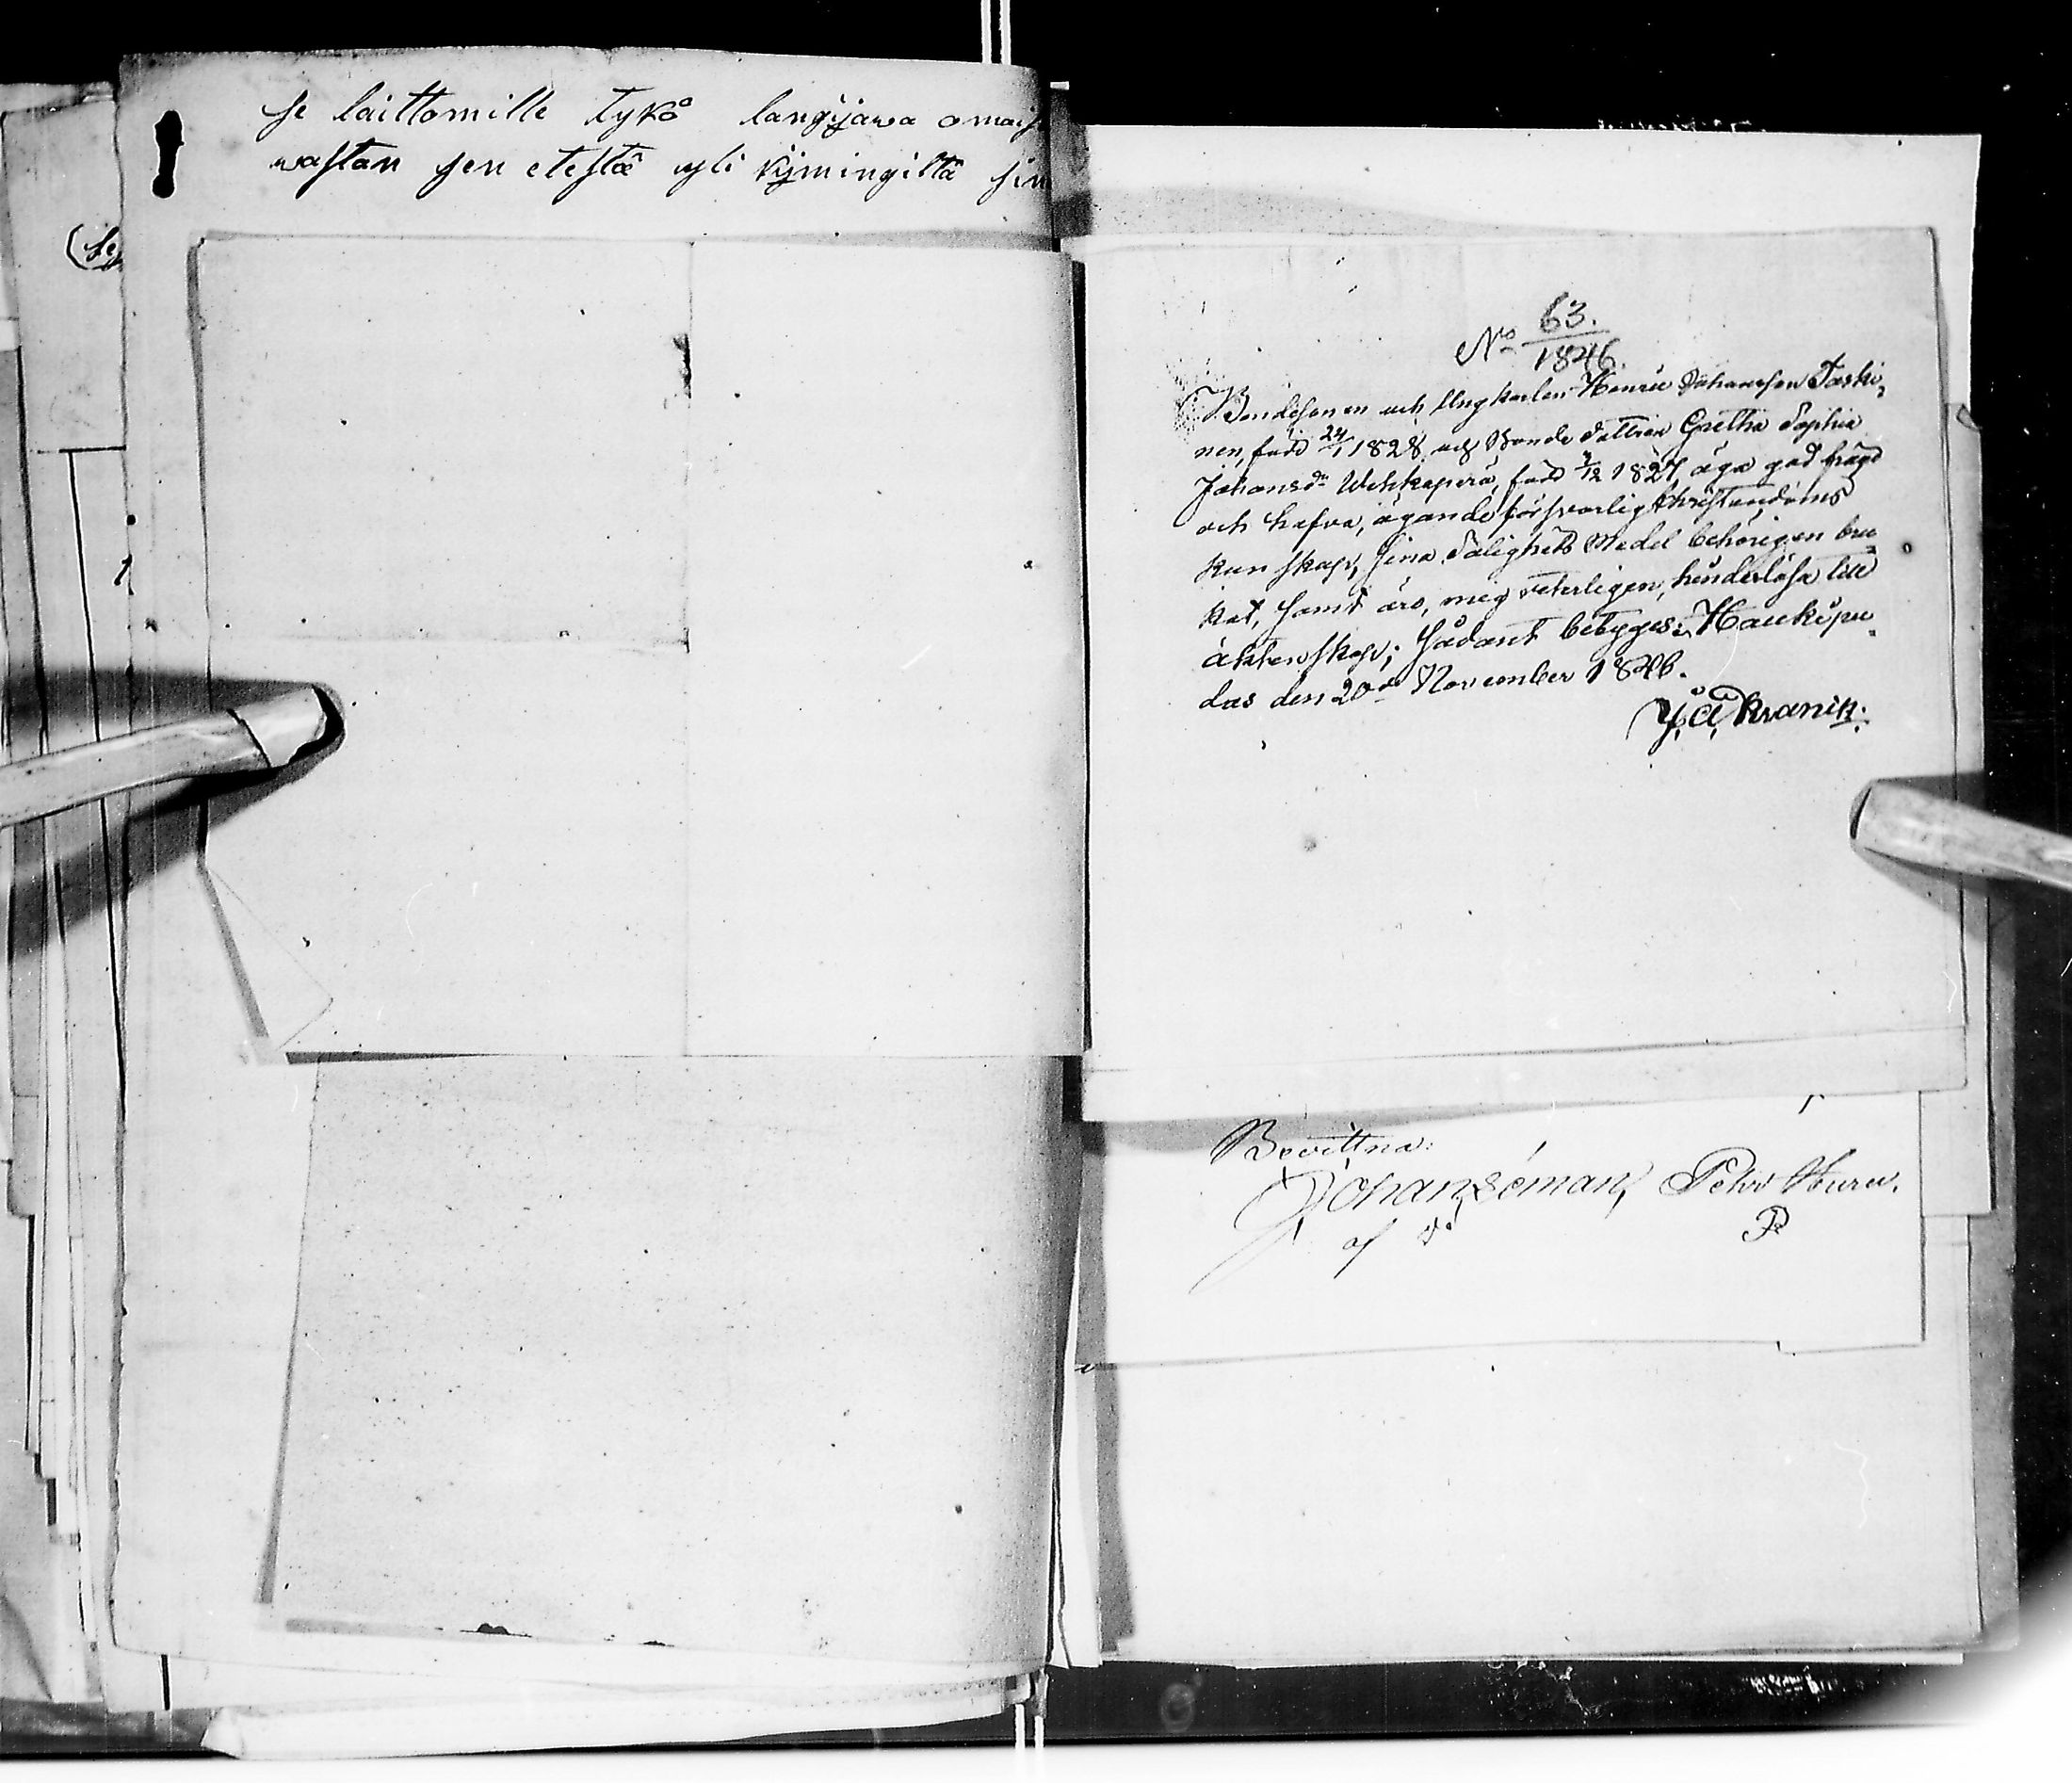 se laittomille tykö langijawa omais
wastan sen etestä yli kijmingiltä sin
No 63.
1846.
Bondesonen och Ungkarlen Henric Johansson Taski-
nen, född 24/1 1828 och Bonde dottren Gretha Sophia
Johansdr Wehkaperä, född 3/12 1827, äga god frägd
och hafva, ägande försvarlig Christendoms
kunskap, sina Salighets Medel behörigen bru-
kat, samt äro, mig veterligen, hinderlösa till
äktenskap; Sådant betygas; Haukipu-
das den 20de November 1846.
J. A. Kranck.
Bevittna:
Johan Seman, Pehr
af
P